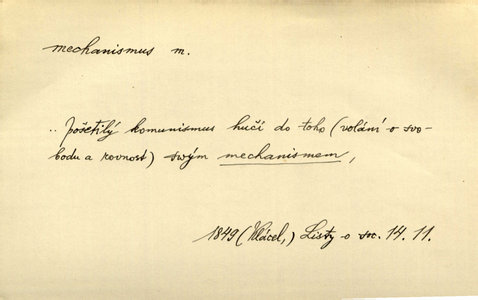 mechanismus m.
.. pošetilý komunismus hučí do toho (volání o svo-
bodu a rovnost) svým mechanismem,
1849 (Klácel,) Listy o soc. 14. 11.